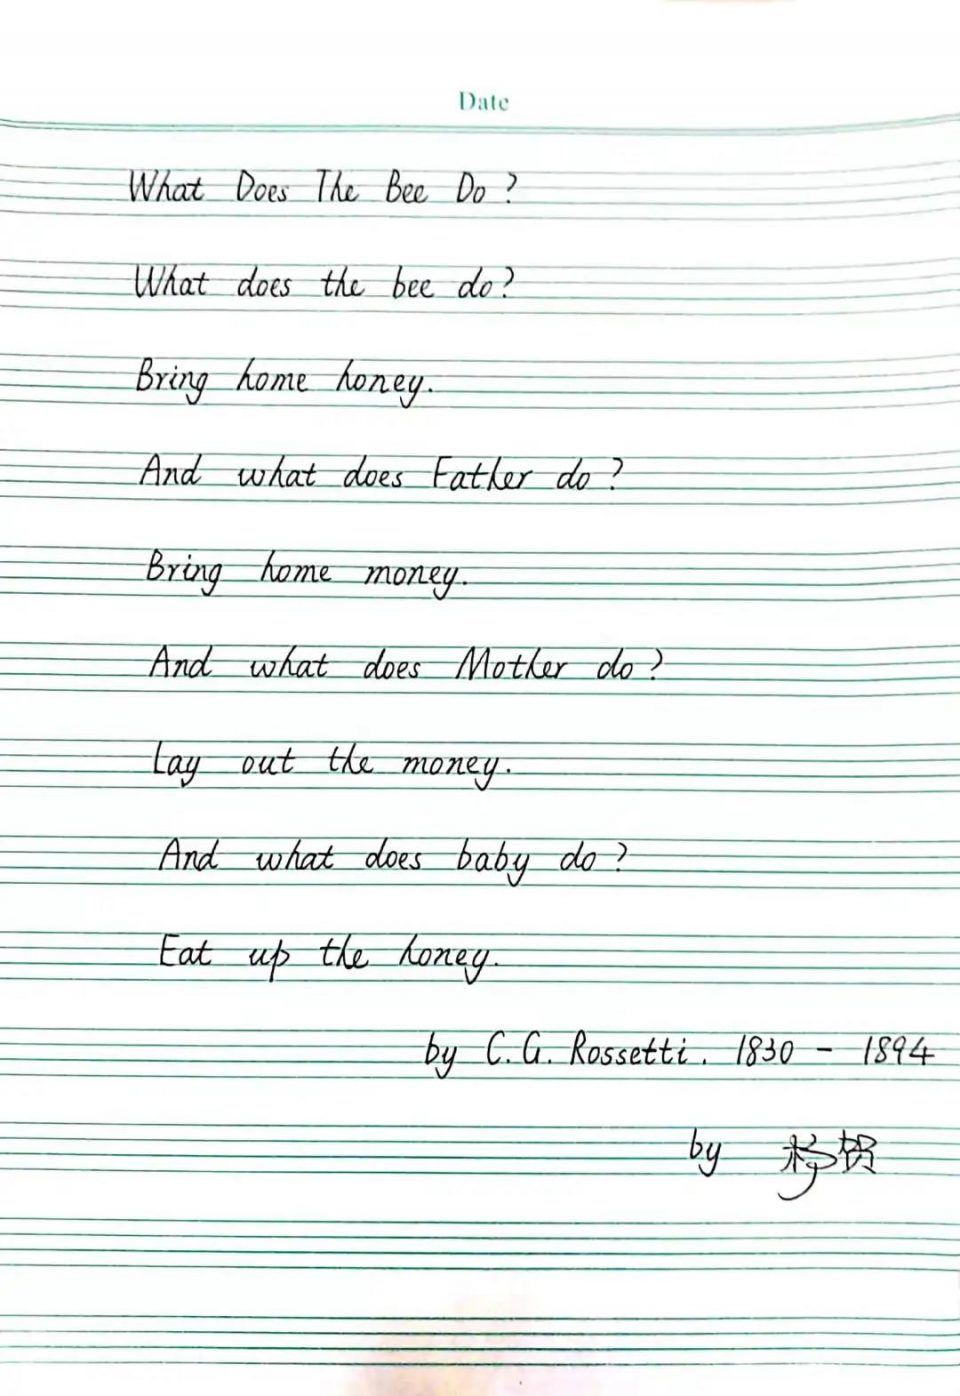 Date
What Does The Bee Do?
What does the bee do?
Bring home honey.
And what does Father do?
Bring home money.
And what does Mother do?
Lay out the money.
And what does baby do?
Eat up the honey.
by C. G. Rossetti. 1830 - 1894
by